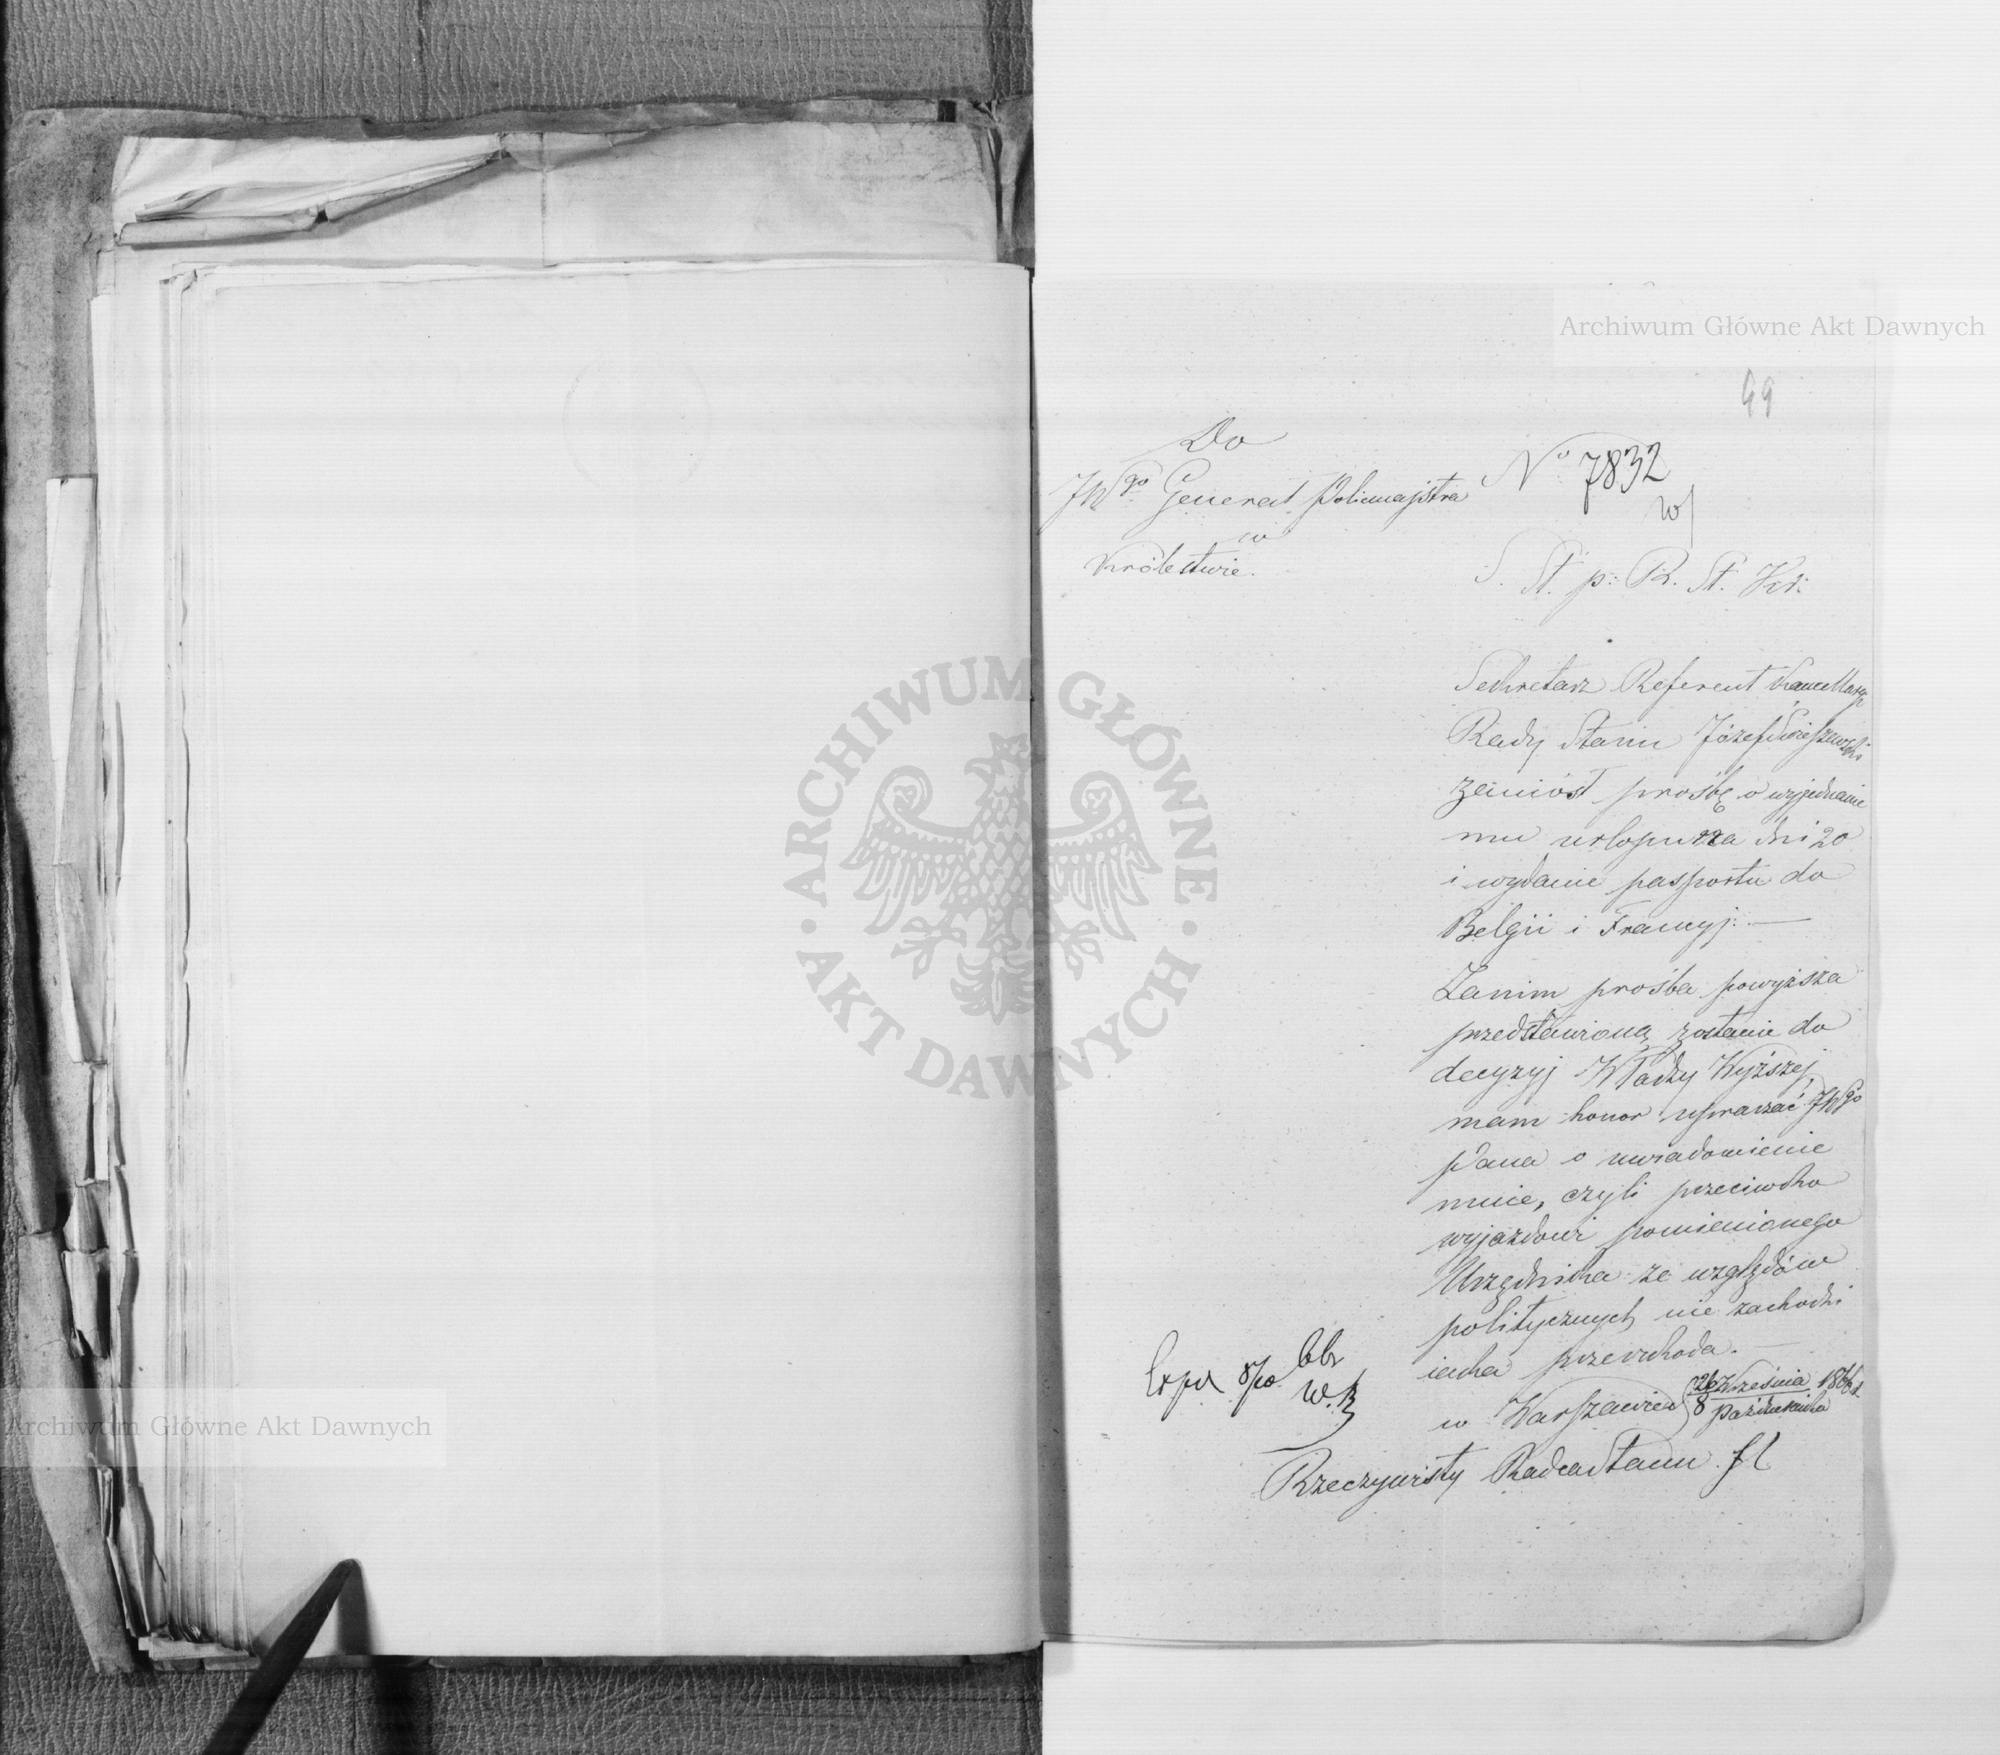 Archiwum Główne Akt Dawnych
99
Do
JWgo General Policmajstra
w
Królestwie.
No 7832
w/
S. St. p: R. St. Kr:
Sekretarz Referent Kancellaryi
Rady Stanu Józef
zaniósł prośbę o wyjednanie
mu urlopu na dni 20
i wydanie passportu do
Belgii i Francyj: —
Zanim prośba powyższa
przedstawioną zostanie do
decyzyj Władzy Wyższej,
mam honor upraszać JWgo
Pana o uwiadomienie
mnie, czyli przeciwko
wyjazdowi pomienionego
Urzędnika ze względów
politycznych nie zachodzi
iaka przeszkoda. —
w Warszawie d 26 Września
8 Października
Rzeczywisty Radca Stanu
Exped 8/10
W.R
ARCHIWUM GŁÓWNE · AKT DAWNYCH ·
Archiwum Główne Akt Dawnych